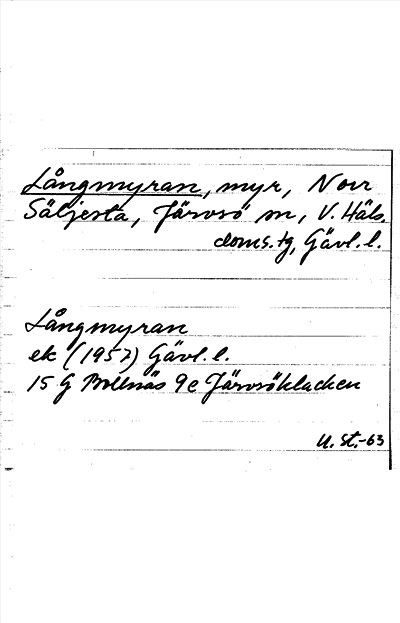 Långmyran, myr, Norr
Säljesta, Järvsö sn, V. Häls.
doms. tg, Gävl. l.
Långmyran
ek (1957) Gävl. l.
15 G Bollnäs 9e Järvsöklacken
U. St.-63